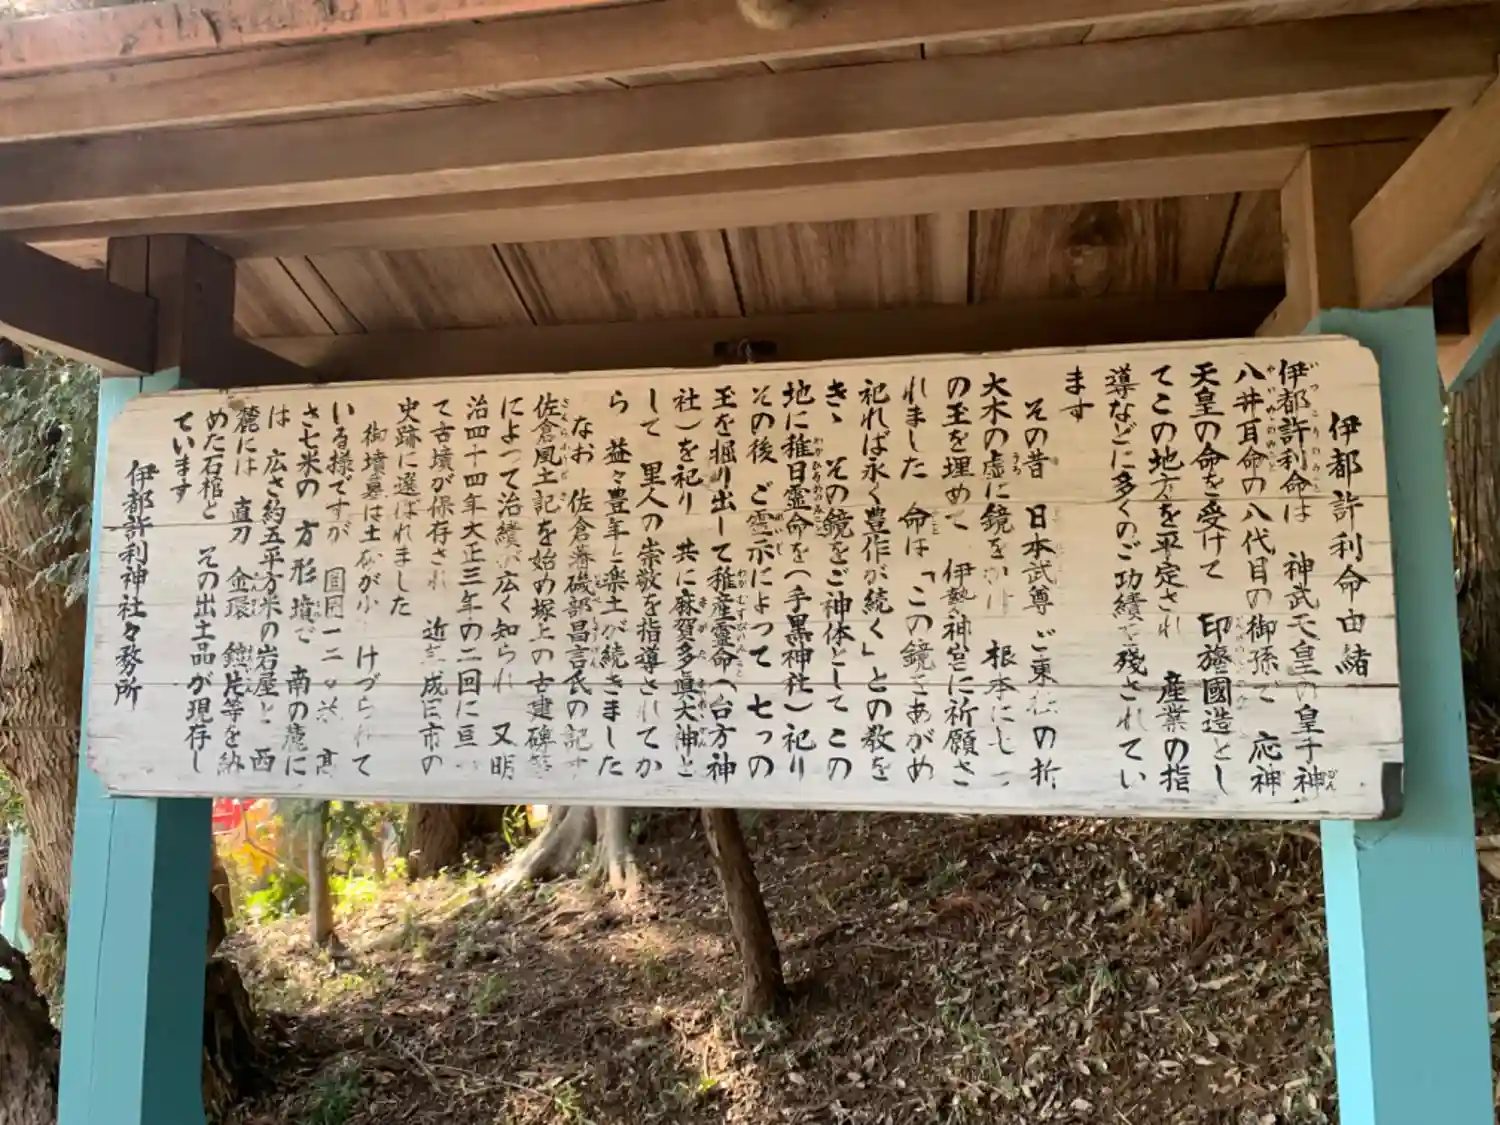 伊都許利命由緒
伊都許利命は 神武天皇の皇子神
八井耳命の八代目の御孫で 応神
天皇の命を受けて 印旛國造とし
てこの地方を平定され 産業の指
導などに多くのご功績を残されてい
ます
その昔 日本武尊 ご東 の折
大木の虚に鏡をかけ 根本に七つ
の玉を埋めて 伊勢神宮に祈願さ
れました 命は「この鏡をあがめ
祀れば永く豊作が続く」との教を
きゝ その鏡をご神体としてこの
地に稚日霊命を(手黒神社)祀り
その後 ご霊示によって七つの
玉を掘り出して稚産霊命(台方神
社)を祀り 共に麻賀多眞大神と
して 里人の崇敬を指導されてか
ら 益々豊年と楽土が続きました
なお 佐倉藩磯部昌言氏の記す
佐倉風土記を始め塚上の古建碑等
によって治績が広く知られ 又明
治四十四年大正三年の二回に亘っ
て古墳が保存され 近 成田市の
史跡に選ばれました
御墳墓は土砂が小 けづられて
いる様ですが 周囲一二 米 高
さ七米の 方形墳で 南の麓に
は 広さ約五平方米の岩屋と 西
麓には 直刀 金環 鎧片等を納
めた石棺と その出土品が現存し
ています
伊都許利神社々務所